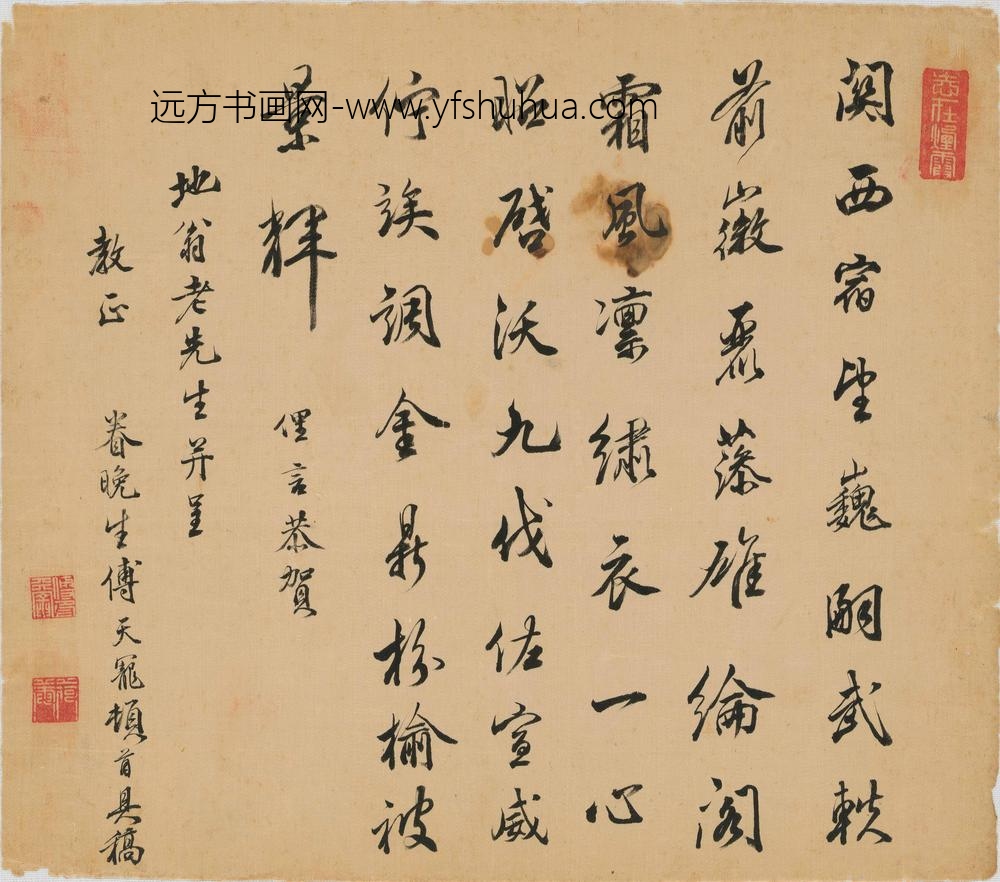 志在煙霞
関西宿望巍嗣武軼
前徽麗藻雄綸閣
霜風凛繡衣一心
昭啓沃九伐佐宣威
佇竢調金鼎枌榆被
景輝 俚言恭賀
地翁老先生并呈
教正 眷晚生傅天寵頓首具稿
远方书画网-www.yfshuhua.com